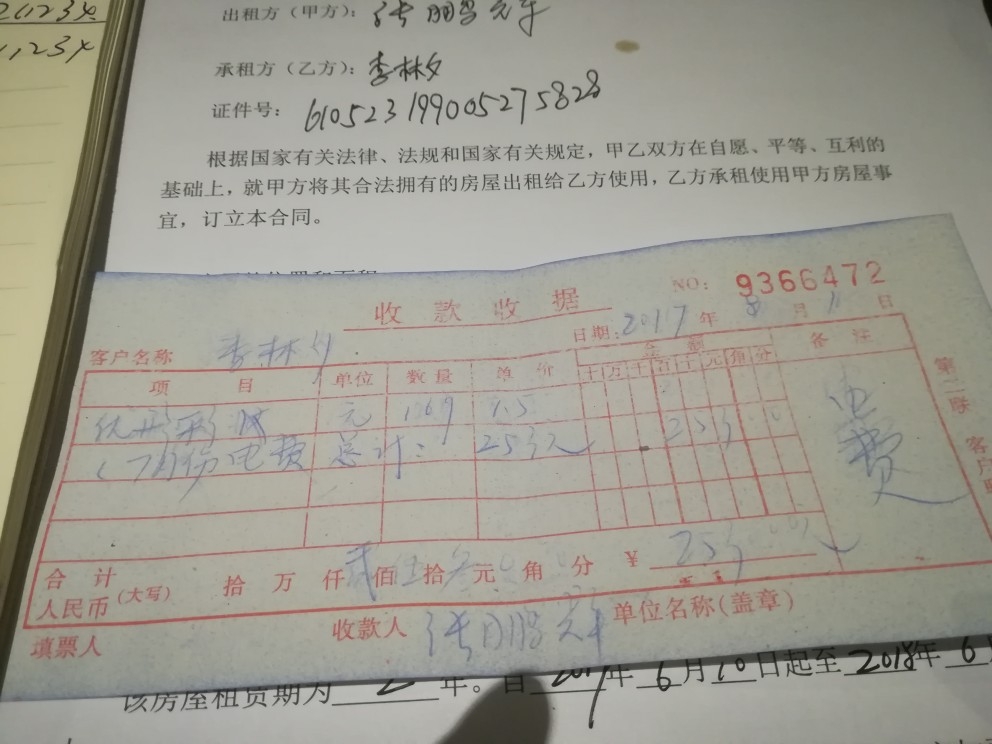 1123x
出租方（甲方）：张鹏
承租方（乙方）：李林夕
证件号：610523199005275828
根据国家有关法律、法规和国家有关规定，甲乙双方在自愿、平等、互利的
基础上，就甲方将其合法拥有的房屋出租给乙方使用，乙方承租使用甲方房屋事
宜，订立本合同。
收款收据 NO: 9366472
日期: 2017年8月11日
客户名称 李林夕
项目 单位 数量 单价 金额 备注
十万千百十元角分
元 169 1.5 电费
7月份电费 总计: 253元 253
第二联 客户联
合计人民币(大写) 拾万仟贰佰伍拾叁元角分 ¥ 253
填票人 收款人 张鹏 单位名称(盖章)
该房屋租赁期为2年。自2017年6月10日起至2018年6